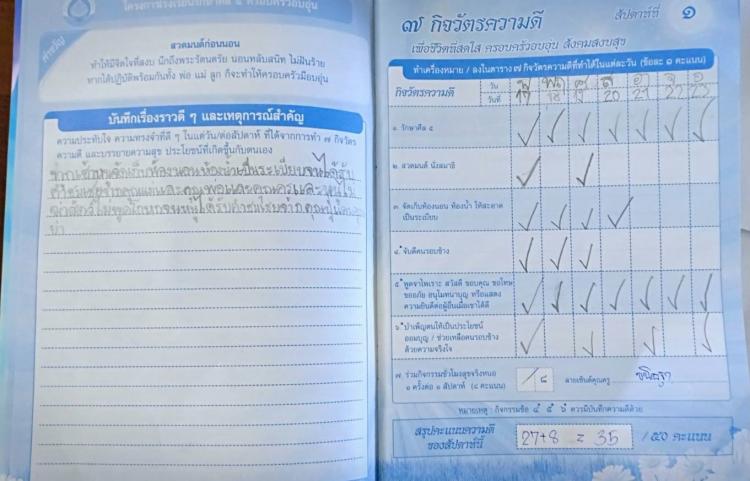 โครงการโรงเรียนรักษาศีล ๕ ครอบครัวอบอุ่น
คำขวัญ
สวดมนต์ก่อนนอน
ทำให้มีจิตใจที่สงบ นึกถึงพระรัตนตรัย นอนหลับสนิท ไม่ฝันร้าย
หากได้ปฏิบัติพร้อมกันทั้ง พ่อ แม่ ลูก ก็จะทำให้ครอบครัวมีอบอุ่น
บันทึกเรื่องราวดี ๆ และเหตุการณ์สำคัญ
ความประทับใจ ความทรงจำที่ดี ๆ ในแต่วัน/ต่อสัปดาห์ ที่ได้จากการทำ ๗ กิจวัตร
ความดี และบรรยายความสุข ประโยชน์ที่เกิดขึ้นกับตนเอง
๗ กิจวัตรความดี
สัปดาห์ที่ ๑
เพื่อชีวิตที่สดใส ครอบครัวอบอุ่น สังคมสงบสุข
ทำเครื่องหมาย / ลงในตาราง ๗ กิจวัตรความดีที่ทำได้ในแต่ละวัน (ข้อละ ๑ คะแนน)
กิจวัตรความดี
วัน พ พฤ ศ ส อา จ อ
วันที่ 17 18 19 20 21 22 23
๑. รักษาศีล ๕
๒. สวดมนต์ นั่งสมาธิ
๓. จัดเก็บห้องนอน ห้องน้ำ ให้สะอาด
เป็นระเบียบ
๔. จับดีคนรอบข้าง
๕. พูดจาไพเราะ สวัสดี ขอบคุณ ขอโทษ
ขออภัย อนุโมทนาบุญ หรือแสดง
ความยินดีต่อผู้อื่นเมื่อเขาได้ดี
๖. บำเพ็ญตนให้เป็นประโยชน์
ออมบุญ / ช่วยเหลือคนรอบข้าง
ด้วยความจริงใจ
๗. ร่วมกิจกรรมชั่วโมงสุขจริงหนอ
๑ ครั้งต่อ ๑ สัปดาห์ (๘ คะแนน)
/ ๘
ลายเซ็นต์คุณครู
หมายเหตุ : กิจกรรมข้อ ๔ ๕ ๖ ควรมีบันทึกความดีด้วย
สรุปคะแนนความดี
ของสัปดาห์นี้
27+8 = 35
/๕๐ คะแนน